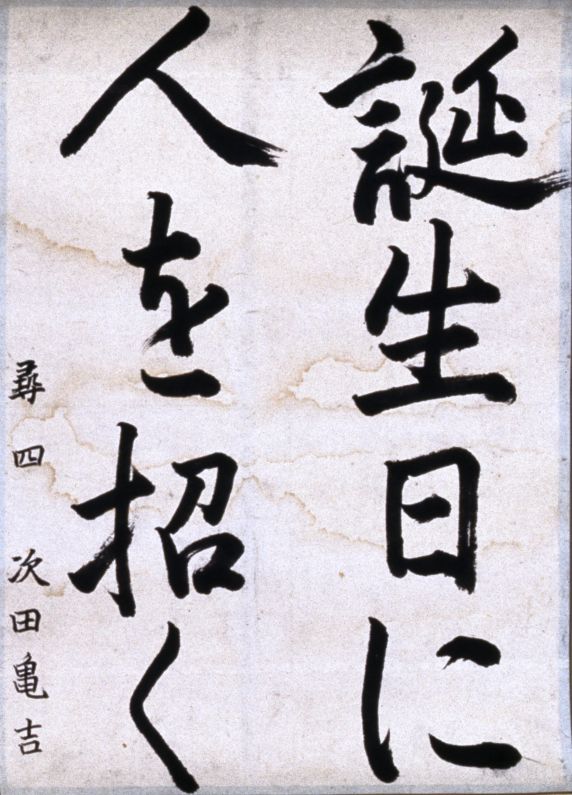 誕生日に
人を招く
尋四 次田亀吉